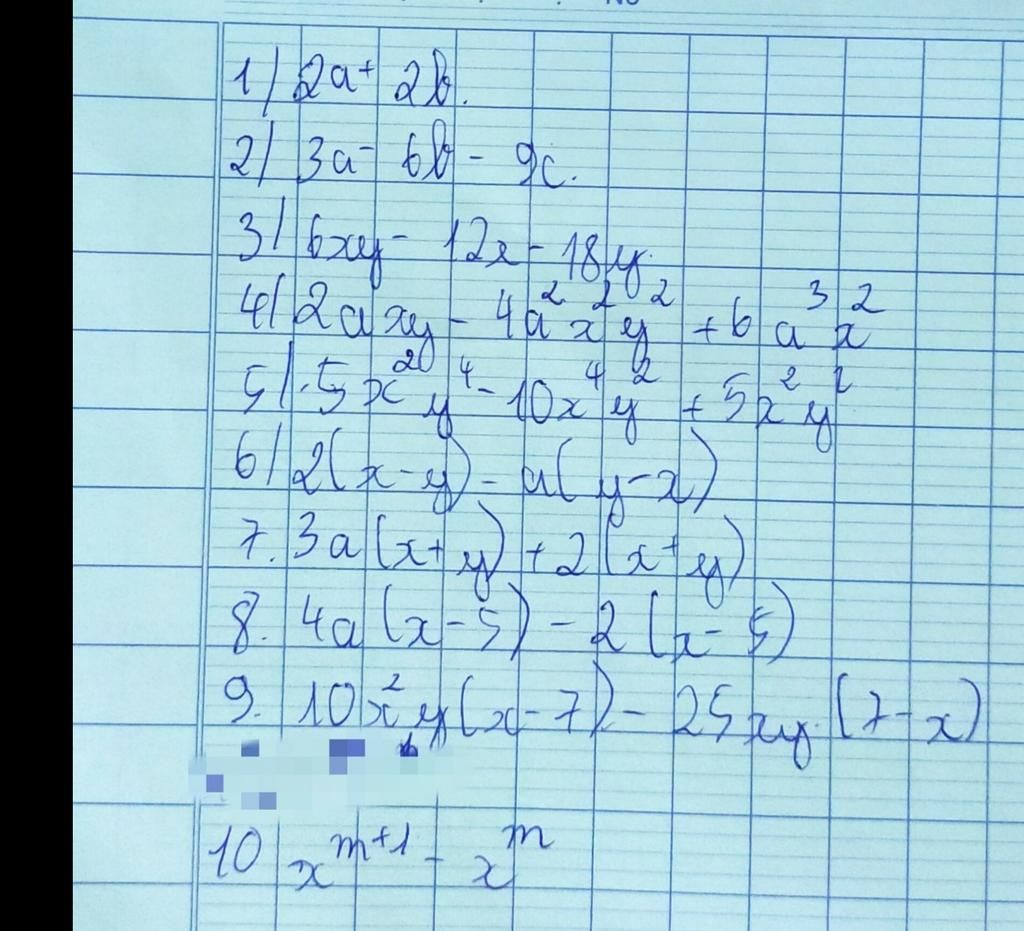 No
1) 2a + 2b.
2) 3a - 6b - 9c.
3) 6xy - 12x - 18y.
4) 2axy - 4a²x²y² + 6a³x²
5) 5x²y⁴ - 10x⁴y² + 5x²y²
6) 2(x-y) - a(y-x)
7. 3a(x+y) + 2(x+y)
8. 4a(x-5) - 2(x-5)
9. 10x²y(x-7) - 25xy(7-x)
10) xᵐ⁺¹ - xᵐ